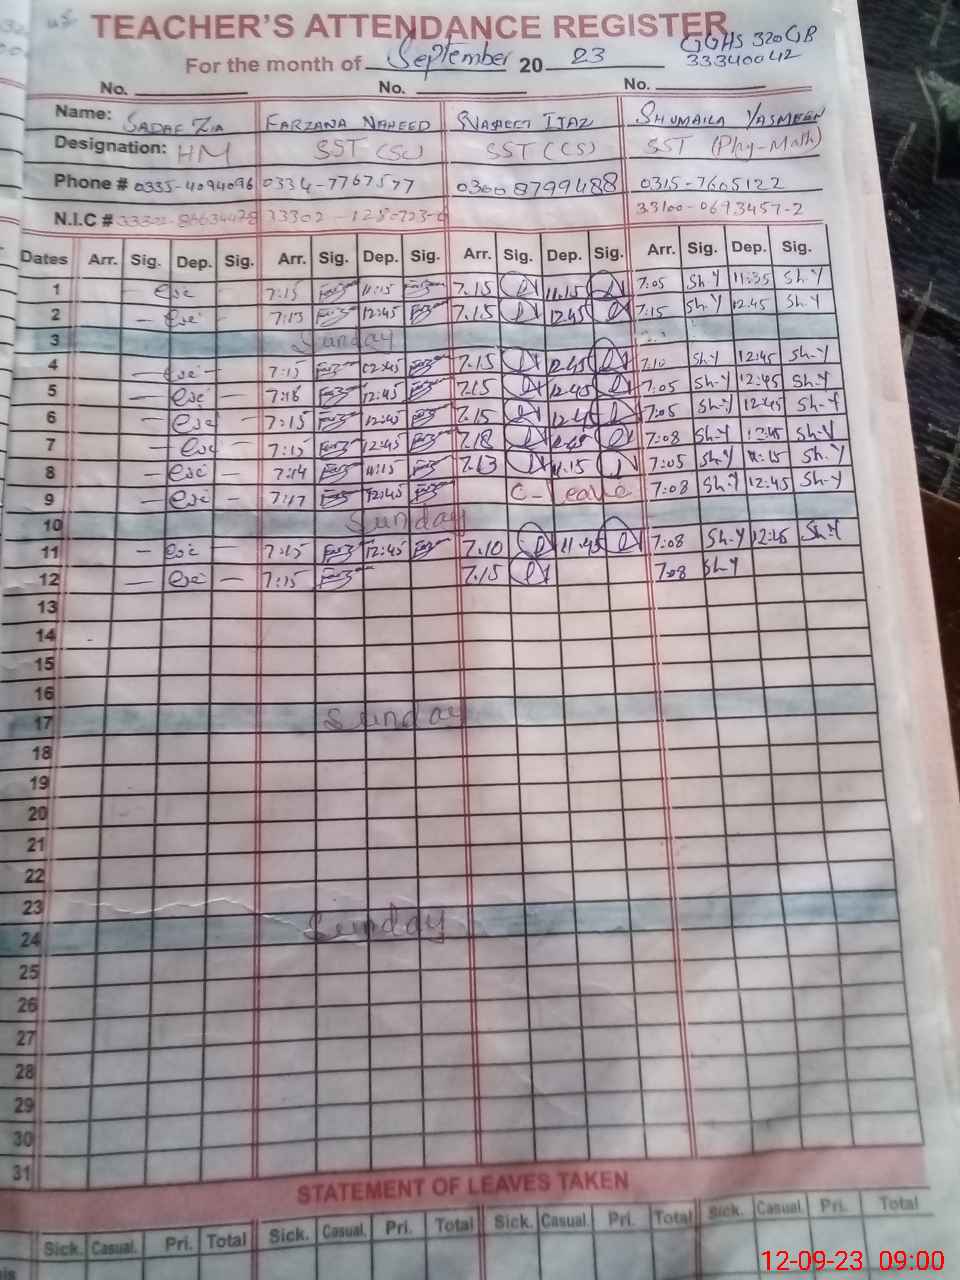 TEACHER'S ATTENDANCE REGISTER
GGHS 320 GB
For the month of September 20 23 33340042
No. No. No.
Name: SADAF ZIA FARZANA NAHEED IJAZ SHUMAILA YASMEEN
Designation: HM SST (Sc) SST (CS) SST (Phy-Math)
Phone # 0335-4094096 0334-7767577 0300 8799488 0315-7605122
N.I.C # 33302 33100-0693457-2
Dates Arr. Sig. Dep. Sig. Arr. Sig. Dep. Sig. Arr. Sig. Dep. Sig. Arr. Sig. Dep. Sig.
1 — 7:15 11:15 7.15 11.15 7:05 Sh-Y 11:35 Sh-Y
2 — 7:13 12:45 7.15 12.45 7:15 Sh-Y 12.45 Sh-Y
3 Sunday
4 — 7:15 12:45 7.15 12.45 7:10 Sh-Y 12:45 Sh-Y
5 — 7:18 12:45 7.15 12.45 7:05 Sh-Y 12:45 Sh-Y
6 — 7:15 12:45 7.15 12.45 7:05 Sh-Y 12:45 Sh-Y
7 — 7:15 12:45 7.18 7:08 Sh-Y 12:45 Sh-Y
8 — 7:14 11:15 7.13 11.15 7:05 Sh-Y 11:15 Sh-Y
9 — 7:17 12:45 C-Leave 7:08 Sh-Y 12:45 Sh-Y
10 Sunday
11 — 7:15 12:45 7.10 11.45 7:08 Sh-Y 12:45 Sh-Y
12 — 7:15 7.15 7:08 Sh-Y
13
14
15
16
17 Sunday
18
19
20
21
22
23
24 Sunday
25
26
27
28
29
30
31
STATEMENT OF LEAVES TAKEN
Sick. Casual. Pri. Total Sick. Casual. Pri. Total Sick. Casual. Pri. Total Sick. Casual. Pri. Total
12-09-23 09:00